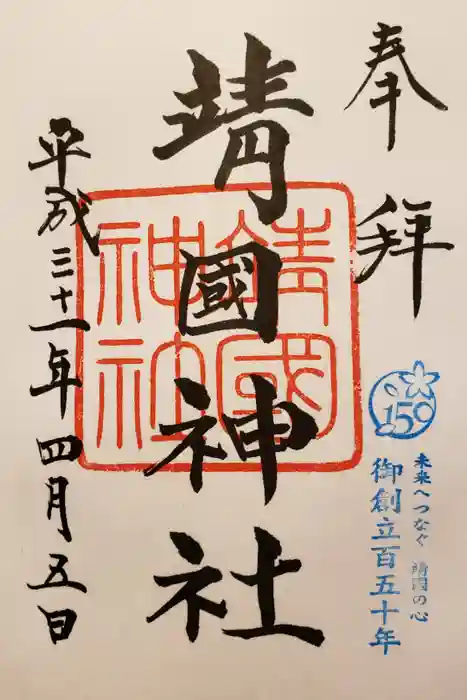 奉拜
150
未来へつなぐ 靖国の心
御創立百五十年
靖國神社
靖國神社
平成三十一年四月五日